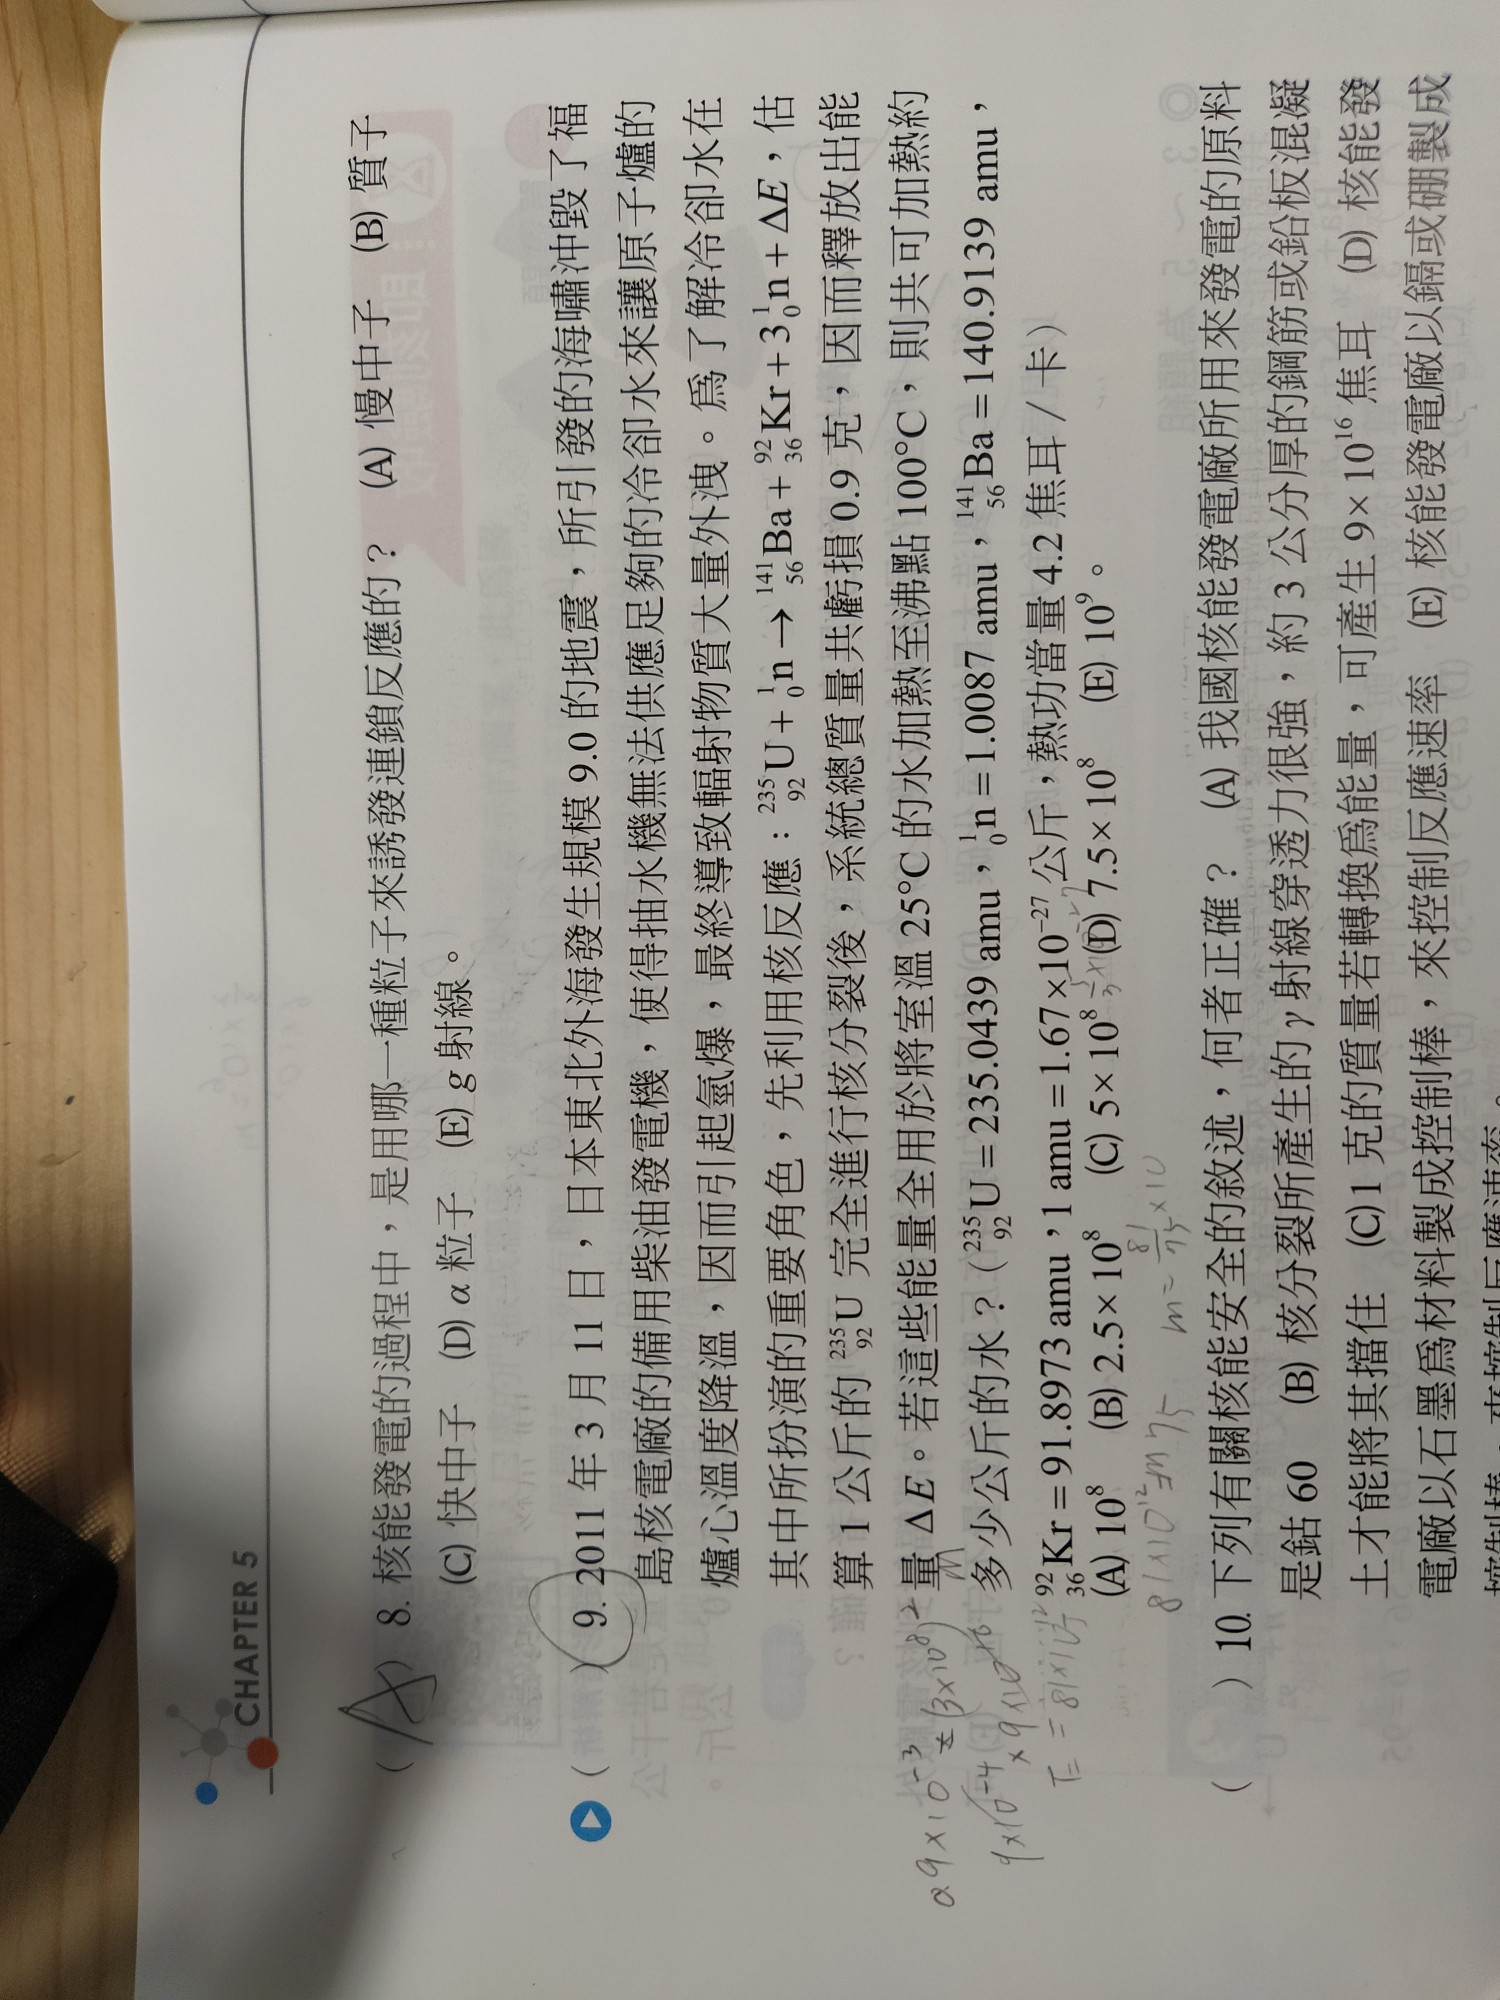 CHAPTER 5
( A ) 8. 核能發電的過程中，是用哪一種粒子來誘發連鎖反應的？ (A) 慢中子 (B) 質子
(C) 快中子 (D) α 粒子 (E) g 射線。
( ) 9. 2011 年 3 月 11 日，日本東北外海發生規模 9.0 的地震，所引發的海嘯沖毀了福
島核電廠的備用柴油發電機，使得抽水機無法供應足夠的冷卻水來讓原子爐的
爐心溫度降溫，因而引起氫爆，最終導致輻射物質大量外洩。為了解冷卻水在
其中所扮演的重要角色，先利用核反應：²³⁵₉₂U + ¹₀n → ¹⁴¹₅₆Ba + ⁹²₃₆Kr + 3¹₀n + ΔE，估
算 1 公斤的 ²³⁵₉₂U 完全進行核分裂後，系統總質量共虧損 0.9 克，因而釋放出能
量 ΔE。若這些能量全用於將室溫 25°C 的水加熱至沸點 100°C，則共可加熱約
多少公斤的水？(²³⁵₉₂U = 235.0439 amu，¹₀n = 1.0087 amu，¹⁴¹₅₆Ba = 140.9139 amu，
⁹²₃₆Kr = 91.8973 amu，1 amu = 1.67×10⁻²⁷ 公斤，熱功當量 4.2 焦耳 / 卡)
(A) 10⁸ (B) 2.5×10⁸ (C) 5×10⁸ (D) 7.5×10⁸ (E) 10⁹。
( ) 10. 下列有關核能安全的敘述，何者正確？ (A) 我國核能發電廠所用來發電的原料
是鈷 60 (B) 核分裂所產生的 γ 射線穿透力很強，約 3 公分厚的鋼筋或鉛板混凝
土才能將其擋住 (C) 1 克的質量若轉換為能量，可產生 9×10¹⁶ 焦耳 (D) 核能發
電廠以石墨為材料製成控制棒，來控制反應速率 (E) 核能發電廠以鎘或硼製成
控制棒，來控制反應速率。